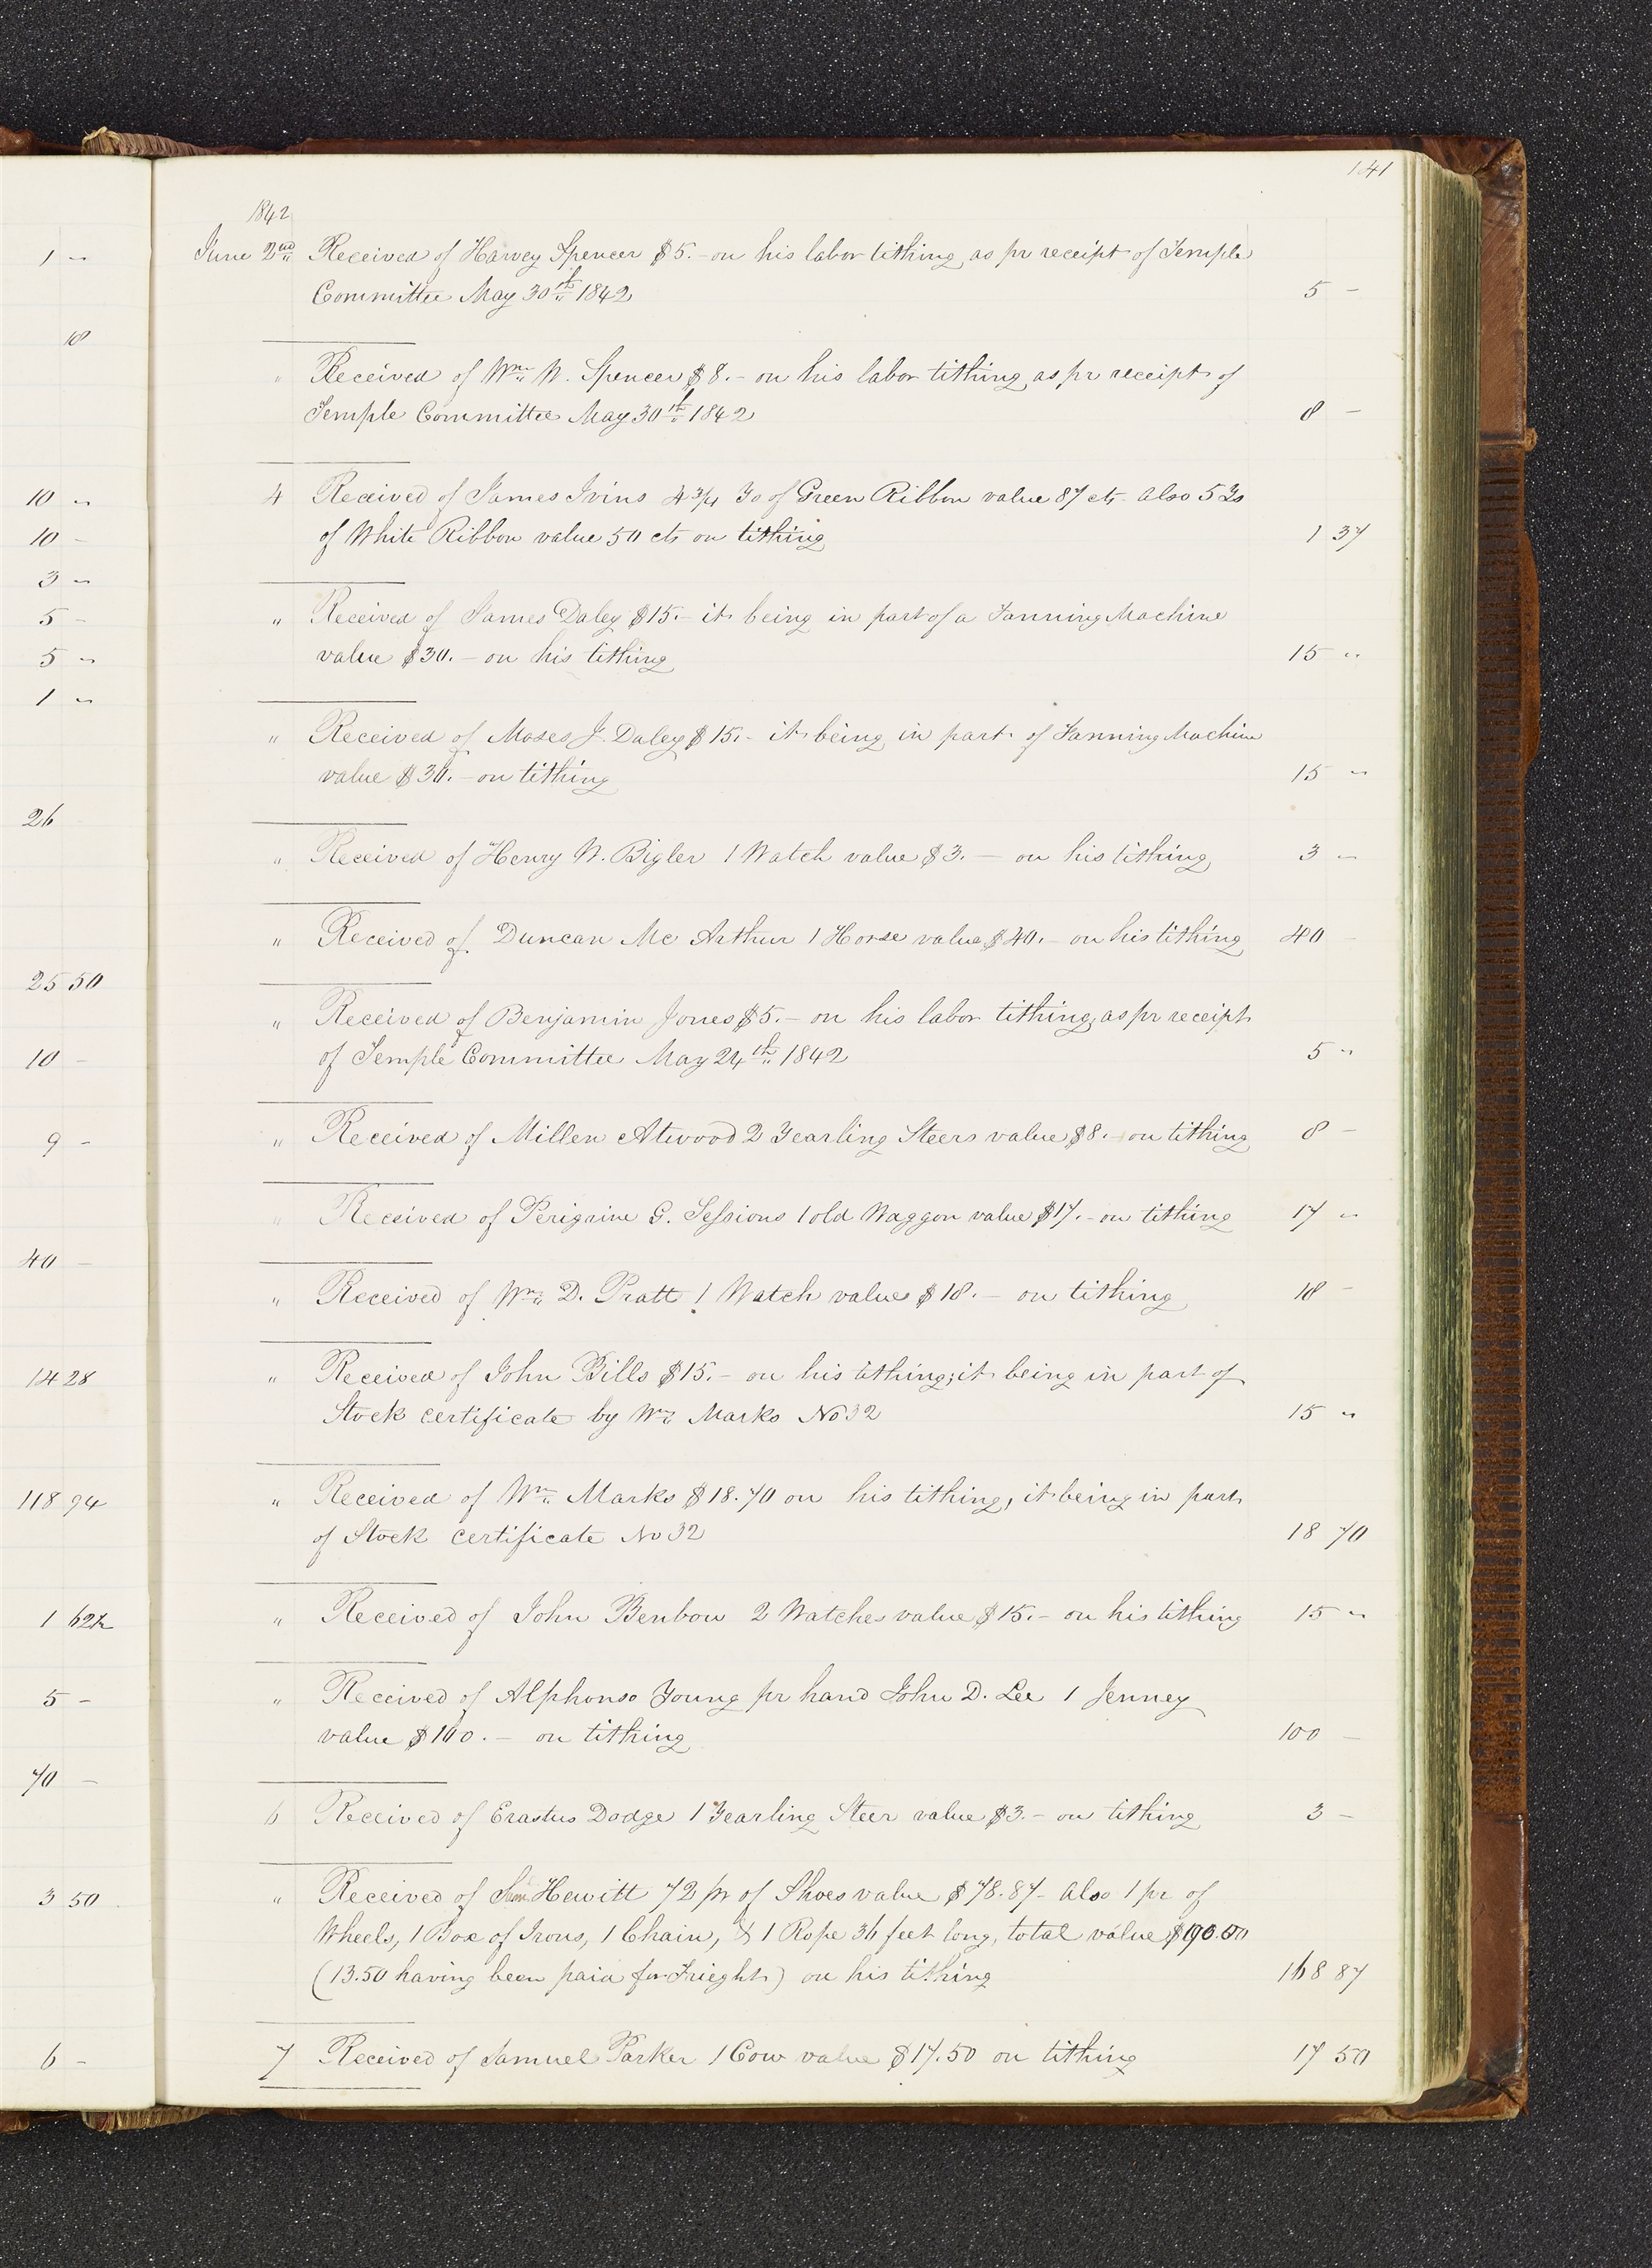 141
1842
June 2nd Received of Harvey Spencer $5.- on his labor tithing, as pr receipt of Temple
Committee May 30th 1842 5 -
" Received of Wm. W. Spencer $8.- on his labor tithing, as pr receipt of
Temple Committee May 30th 1842 8 -
4 Received of James Ivins 4 3/4 Yds of Green Ribbon value 87 cts. also 5 Yds
of White Ribbon value 50 cts on tithing 1 37
" Received of James Daley $15.- it being in part of a Fanning Machine
value $30.- on his tithing 15 "
" Received of Moses J. Daley $15.- it being in part of Fanning Machine
value $30.- on tithing 15 "
" Received of Henry W. Bigler 1 Watch value $3.- on his tithing 3 "
" Received of Duncan Mc Arthur 1 Horse value $40.- on his tithing 40 -
" Received of Benjamin Jones $5.- on his labor tithing, as pr receipt
of Temple Committee May 24th 1842 5 "
" Received of Millen Atwood 2 Yearling Steers value $8.- on tithing 8 -
" Received of Perigrine G. Sessions 1 old Waggon value $17.- on tithing 17 "
" Received of Wm. D. Pratt 1 Watch value $18.- on tithing 18 -
" Received of John Bills $15.- on his tithing; it being in part of
Stock certificate by Wm. Marks No 32 15 "
" Received of Wm. Marks $18.70 on his tithing, it being in part
of Stock certificate No 32 18 70
" Received of John Benbow 2 Watches value $15.- on his tithing 15 "
" Received of Alphonso Young pr hand John D. Lee 1 Jenney
value $100.- on tithing 100 -
6 Received of Erastus Dodge 1 Yearling Steer value $3.- on tithing 3 -
" Received of Hewitt 72 pr of Shoes value $78.87- also 1 pr of
Wheels, 1 Box of Irons, 1 Chain, & 1 Rope 36 feet long, total value $190.00
(13.50 having been paid for Frieght) on his tithing 168 87
7 Received of Samuel Parker 1 Cow value $17.50 on tithing 17 50
1 "
18
10 "
10 -
3 "
5 -
5 "
1 "
26
25 50
10 -
9 -
40 -
14 28
118 94
1 62½
5 -
70 -
3 50
6 -